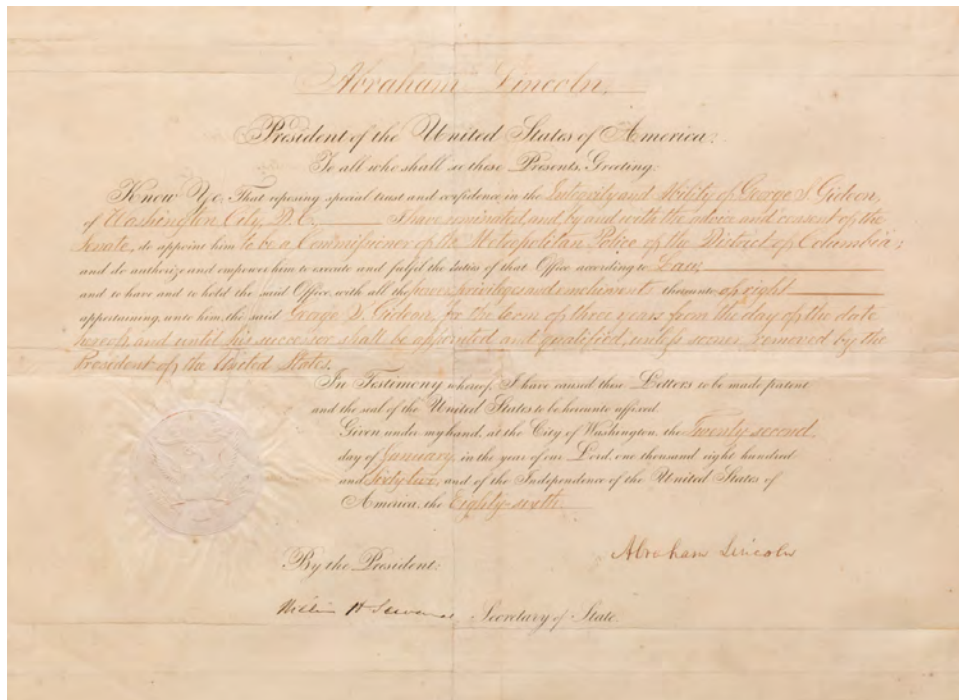 Abraham Lincoln,
President of the United States of America.
To all who shall see these Presents, Greeting:
Know Ye, That reposing special trust and confidence in the Integrity and Ability of George S. Gideon,
of Washington City, D.C. I have nominated, and by and with the advice and consent of the
Senate, do appoint him to be a Commissioner of the Metropolitan Police of the District of Columbia;
and do authorize and empower him to execute and fulfil the duties of that Office according to Law;
and to have and to hold the said Office, with all the powers, privileges and emoluments thereunto of right
appertaining, unto him, the said George S. Gideon, for the term of three years from the day of the date
hereof, and until his successor shall be appointed and qualified, unless sooner removed by the
President of the United States.
In Testimony whereof, I have caused these Letters to be made patent
and the seal of the United States to be hereunto affixed.
Given under my hand, at the City of Washington, the Twenty second
day of January, in the year of our Lord, one thousand eight hundred
and Sixty two, and of the Independence of the United States of
America, the Eighty-sixth.
Abraham Lincoln
By the President:
William H Seward Secretary of State.